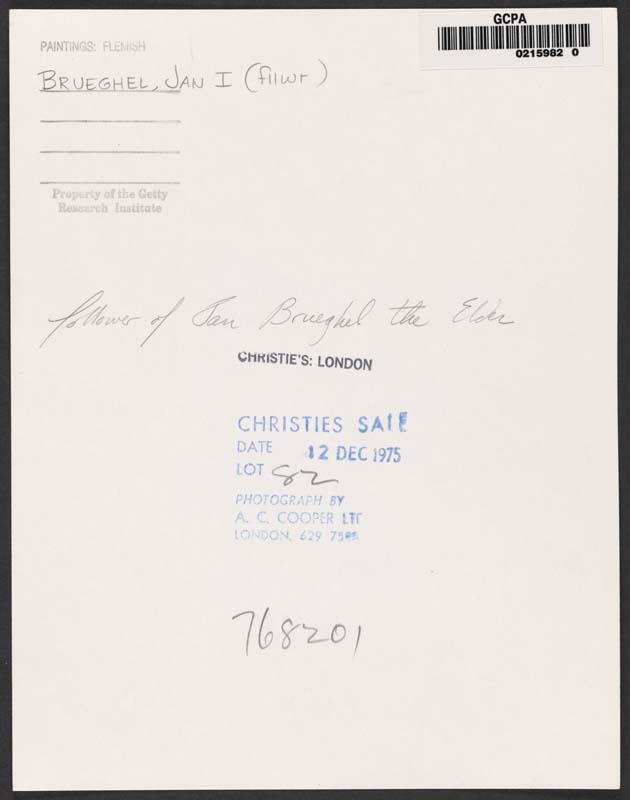 GCPA
0215982 0
PAINTINGS: FLEMISH
BRUEGHEL, JAN I (fllwr)
Property of the Getty
Research Institute
follower of Jan Brueghel the Elder
CHRISTIE'S: LONDON
CHRISTIES SALE
DATE 12 DEC 1975
LOT 82
PHOTOGRAPH BY
A. C. COOPER LTD
LONDON, 629
768201